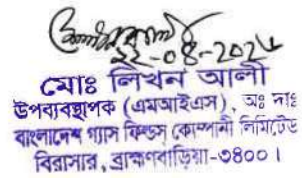 ২২-০৪-২০২৫
মোঃ লিখন আলী
উপব্যবস্থাপক (এমআইএস), অঃ দাঃ
বাংলাদেশ গ্যাস ফিল্ডস্ কোম্পানী লিমিটেড
বিরাসার, ব্রাহ্মণবাড়িয়া-৩৪০০।